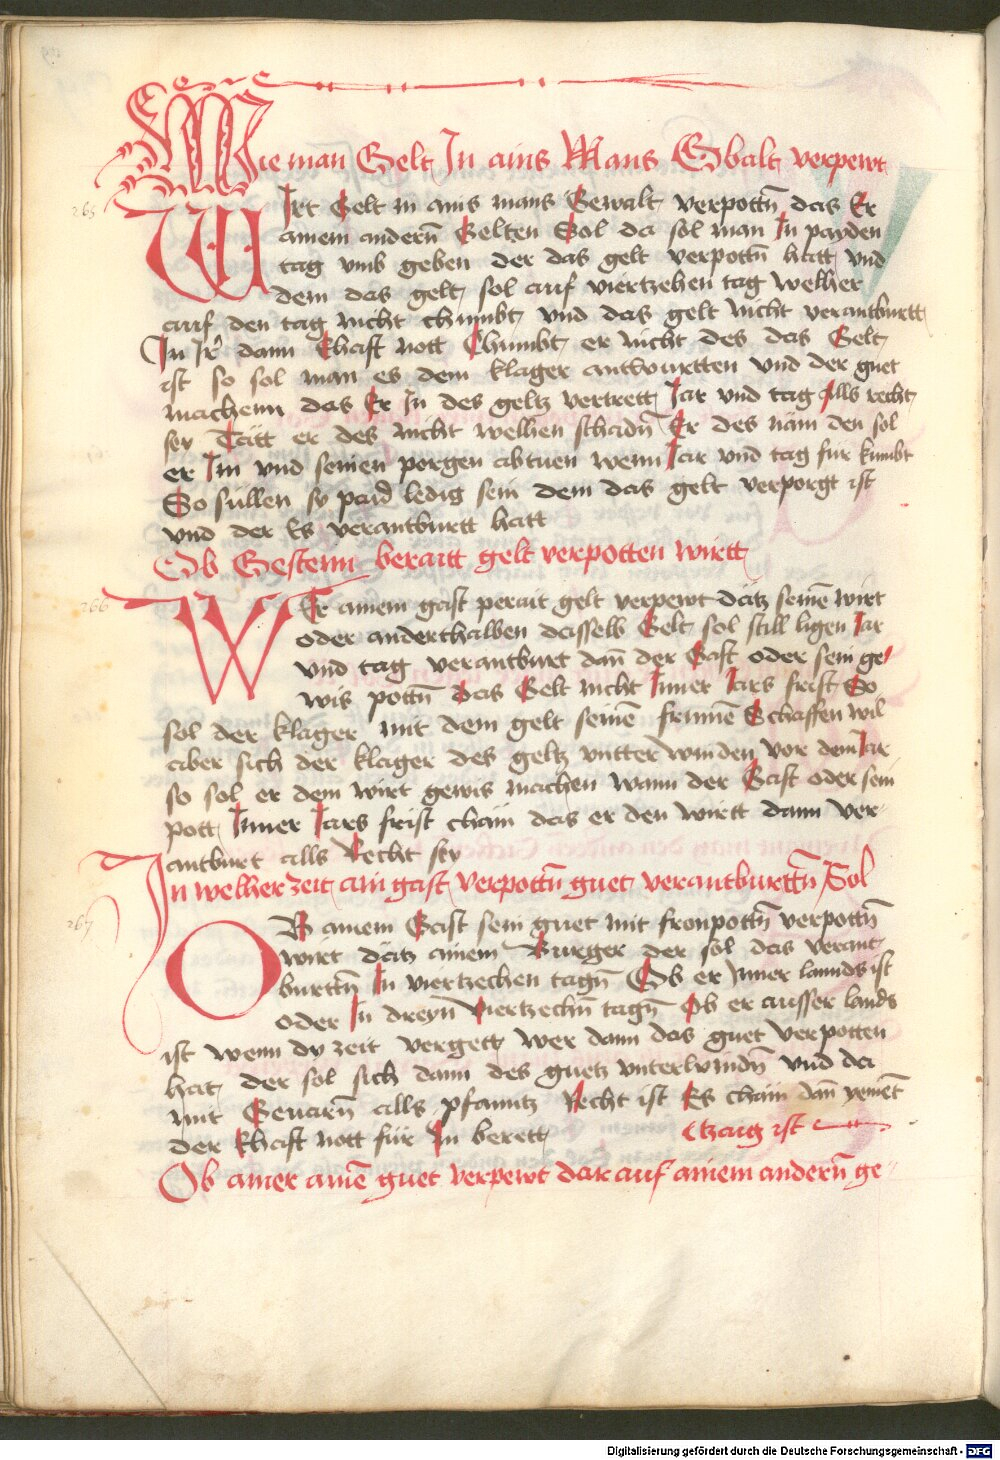 Wie man Gelt In ains Mans Gbalt verpewt
265
Wirt Gelt in ains mans Gewalt verpottn̄ das Er
ainem andern̄ Gelten Sol da sol man In payden
tag vmb geben der das gelt verpottn̄ hatt vnd
dem das gelt sol auf viertzehen tag welher
auf den tag nicht chumbt vnd das gelt nicht verantburtt
In Ir dann Ehaft nott Chumbt er nicht des das Gelt
ist so sol man es dem klager antwurtten vnd der guet
machenn das Er In des geltz vertrett Jar vnd tag Alls recht
sey Tätt er des nicht welhen schadn̄ Er des näm den sol
er Im vnd seinen porgen abtuen wenn Jar vnd tag für kumbt
So süllen sy paid ledig sein dem das gelt verporgt ist
vnd der Es verantburtt hatt
Ob Gestenn beraitt gelt verpotten wirtt
266
Wer ainem gast perait gelt verpewt dätz seinē wirt
oder anderthalben dasselb Gelt sol still ligen Jar
vnd tag verantburt dan̄ der Gast oder sein ge
wis pottn̄ das Gelt nicht Inner Jars frist So
sol der klager mit dem gelt seinē frumē Schaffen wil
aber sich der klager des geltz vntter winden vor dem Jar
so sol er dem wirt gewis machen wann der Gast oder sein
pott Inner Jars frist chäm das er den wirtt dann ver
antburt alls Recht sey
In welher zeit ain gast verpottn̄ guet verantburttn̄ Sol
267
OB ainem Gast sein guet mit fronpottn̄ verpottn̄
wirt dätz ainem Burger der sol das verant
burttn̄ In viertzechen tagn̄ Ob er Inner lannds ist
oder In dreyn̄ viertzechn̄ tagn̄ Ob er ausser lands
ist wenn dy zeit vergett wer dann das guet verpotten
hat der sol sich dann des guetz vnterwindn̄ vnd da
mit Geuarn̄ alls pfanntz Recht ist Es chäm dan̄ yenēt
der Ehaft nott für In berett Ctzaig ist
Ob ainer ainē guet verpewt dar auf ainem andern̄ ge
Digitalisierung gefördert durch die Deutsche Forschungsgemeinschaft - DFG